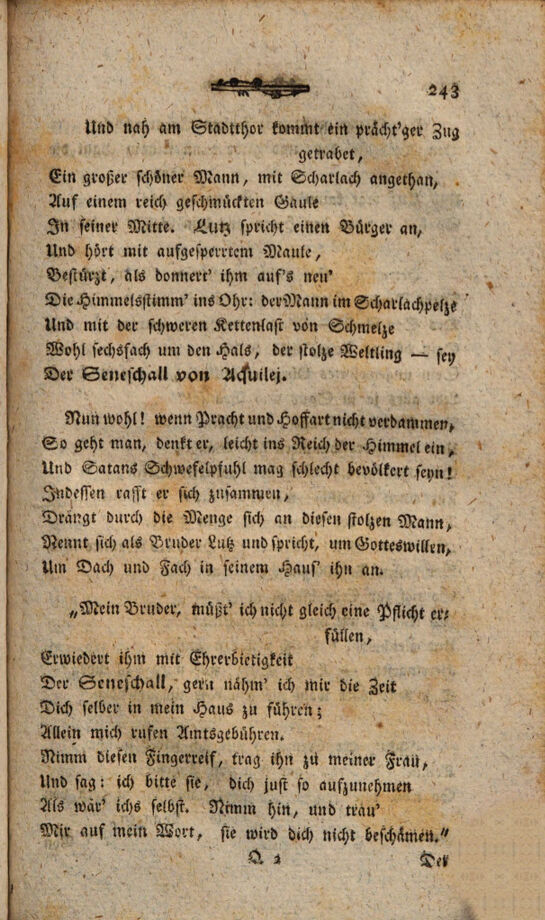 243
Und nah am Stadtthor kommt ein prächt'ger Zug
getrabet,
Ein großer schöner Mann, mit Scharlach angethan,
Auf einem reich geschmückten Gaule
In seiner Mitte. Lutz spricht einen Bürger an,
Und hört mit aufgesperrtem Maule,
Bestürzt, als donnert' ihm auf's neu'
Die Himmelsstimm' ins Ohr: der Mann im Scharlachpelze
Und mit der schweren Kettenlast von Schmelze
Wohl sechsfach um den Hals, der stolze Weltling — sey
Der Seneschall von Acquilej.
Nun wohl! wenn Pracht und Hoffart nicht verdammen,
So geht man, denkt er, leicht ins Reich der Himmel ein,
Und Satans Schwefelpfuhl mag schlecht bevölkert seyn!
Indessen rafft er sich zusammen,
Drängt durch die Menge sich an diesen stolzen Mann,
Nennt sich als Bruder Lutz und spricht, um Gotteswillen,
Um Dach und Fach in seinem Haus' ihn an.
„Mein Bruder, müßt' ich nicht gleich eine Pflicht er-
füllen,
Erwiedert ihm mit Ehrerbietigkeit
Der Seneschall, gern nähm' ich mir die Zeit
Dich selber in mein Haus zu führen;
Allein mich rufen Amtsgebühren.
Nimm diesen Fingerreif, trag ihn zu meiner Frau,
Und sag: ich bitte sie, dich just so aufzunehmen
Als wär' ichs selbst. Nimm hin, und trau'
Mir auf mein Wort, sie wird dich nicht beschämen."
Q 2
Der